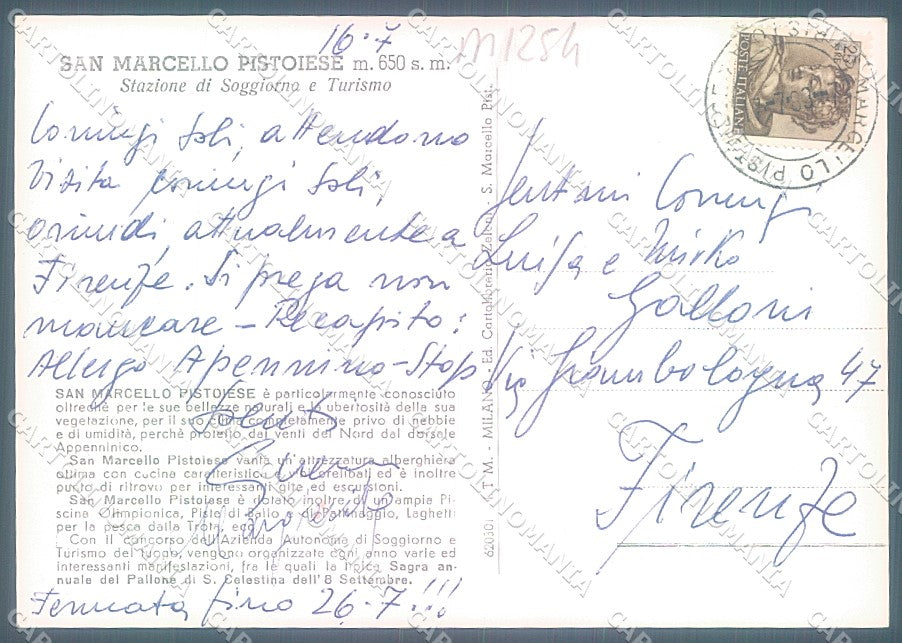 16-7
m1254
SAN MARCELLO PISTOIESE m. 650 s. m.
Stazione di Soggiorno e Turismo
Coniugi soli, attendono
visita coniugi soli,
oriundi, attualmente a
Firenze. Si prega non
mancare - Recapito:
Albergo Apennino - Stop
SAN MARCELLO PISTOIESE è particolarmente conosciuto
oltrechè per le sue bellezze naturali e l'ubertosità della sua
vegetazione, per il suo clima completamente privo di nebbie
e di umidità, perchè protetto dai venti del Nord dal dorsale
Appenninico.
San Marcello Pistoiese vanta un'attrezzatura alberghiera
ottima con cucina caratteristica e vini prelibati ed è inoltre
punto di ritrovo per interessanti gite ed escursioni.
San Marcello Pistoiese è dotato inoltre di un'ampia Pi-
scina Olimpionica, Piste di ballo e di Pattinaggio, Laghetti
per la pesca dalla Trota, ecc.
Con il concorso dell'Azienda Autonoma di Soggiorno e
Turismo del luogo, vengono organizzate ogni anno varie ed
interessanti manifestazioni, fra le quali la tipica Sagra an-
nuale del Pallone di S. Celestina dell'8 Settembre.
Saluti
Fermata fino 26-7!!!
62030. T M - MILANO - Ed. Cartolibraria Zeloni - S. Marcello Pist.
POSTE ITALIANE
S. MARCELLO PISTOIESE
Gent.mi Coniugi
Luisa e Mirko
Galloni
Via Giambologna 47
Firenze
CARTOLINOMANIA